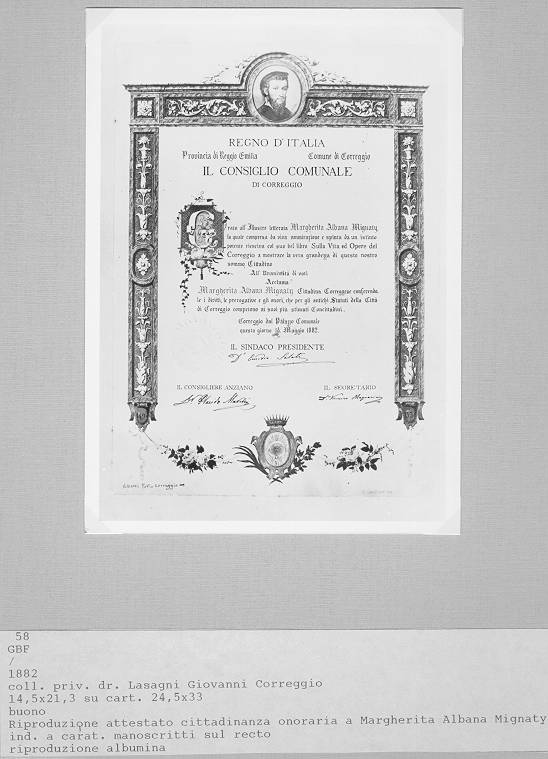 REGNO D'ITALIA
Provincia di Reggio Emilia Comune di Correggio
IL CONSIGLIO COMUNALE
DI CORREGGIO
Grato all'Illustre letterata Margherita Albana Mignaty
la quale compresa da viva ammirazione e spinta da un intenso
potente riesciva col suo bel libro Sulla Vita ed Opere del
Correggio a mostrare la vera grandezza di questo nostro
sommo Cittadino
All'Unanimità di voti
Acclama
Margherita Albana Mignaty Cittadina Correggese conferendo
le i diritti, le prerogative e gli onori, che per gli antichi Statuti della Città
di Correggio competono ai suoi più stimati Concittadini.
Correggio dal Palazzo Comunale
questo giorno Maggio 1882.
IL SINDACO PRESIDENTE
IL CONSIGLIERE ANZIANO IL SEGRETARIO
Correggio
58
GBF
/
1882
coll. priv. dr. Lasagni Giovanni Correggio
14,5x21,3 su cart. 24,5x33
buono
Riproduzione attestato cittadinanza onoraria a Margherita Albana Mignaty
ind. a carat. manoscritti sul recto
riproduzione albumina